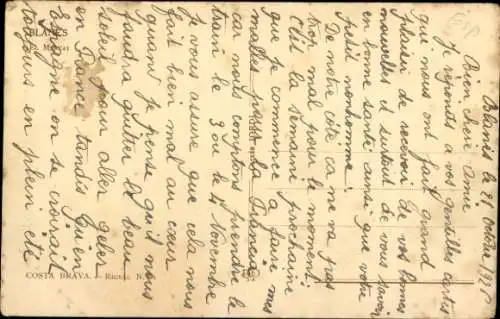 Blanes le 28 octobre 192
Bien chère amie
Je réponds à vos gentilles cartes
qui nous ont fait grand
plaisir de recevoir de vos bonnes
nouvelles et surtout de vous savoir
en bonne santé ainsi que votre
petit bonhomme.
De notre côté ça ne va pas
trop mal pour le moment
c'est la semaine prochaine
que je commence à faire mes
malles pour la France
car nous comptons prendre le
train le 3 ou le 4 Novembre
je vous assure que cela nous
fait bien mal au cœur
quand je pense qu'il nous
faudra quitter le beau
soleil pour aller geler
en France tandis qu'en
Espagne on se croirait
toujours en plein été
BLANES
COSTA BRAVA. - Recort N.